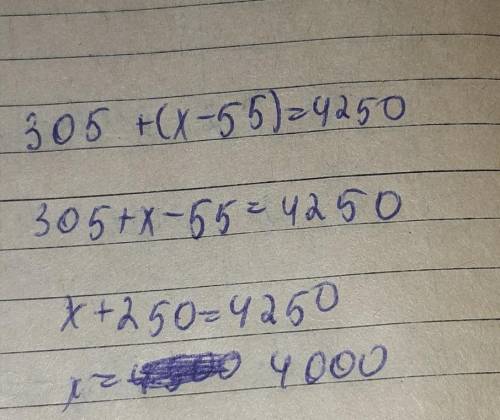 305 +(x-55)=4250
305+x-55=4250
x+250=4250
x= 4000